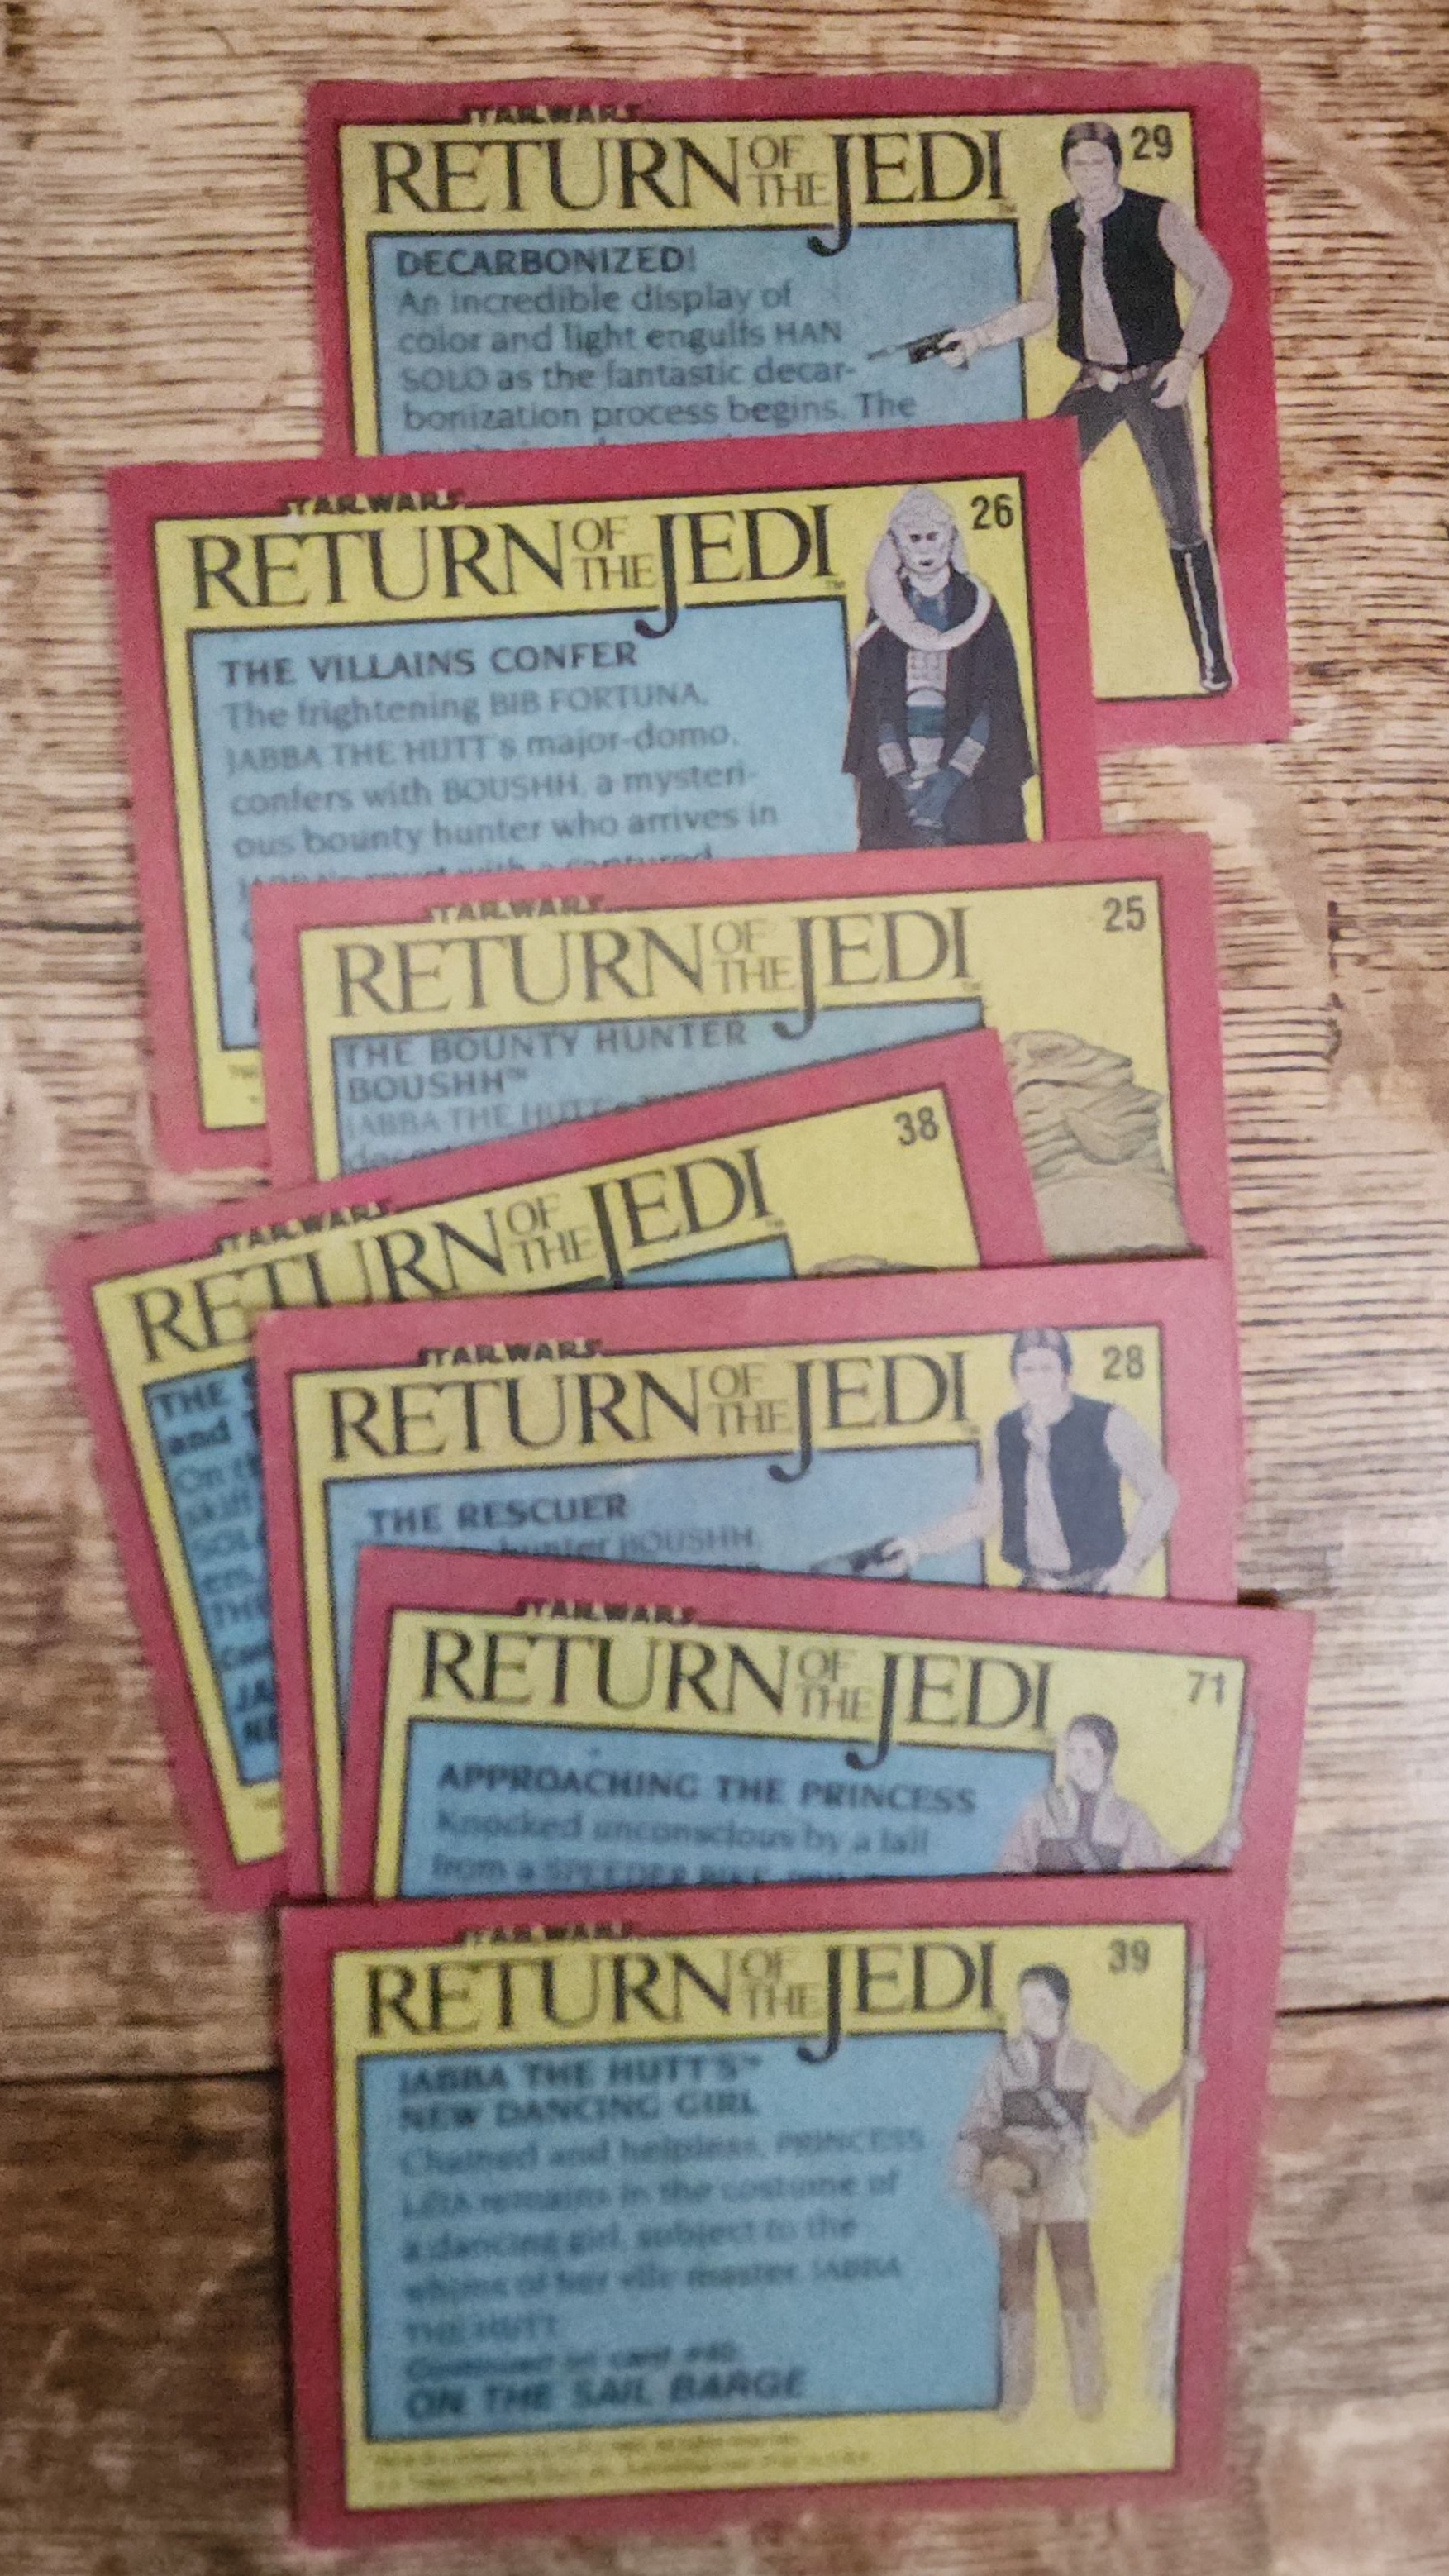 STAR WARS
RETURN OF THE JEDI
29
DECARBONIZED!
An incredible display of
color and light engulfs HAN
SOLO as the fantastic decar-
bonization process begins. The
STAR WARS
RETURN OF THE JEDI™
26
THE VILLAINS CONFER
The frightening BIB FORTUNA,
JABBA THE HUTT's major-domo,
confers with BOUSHH, a mysteri-
ous bounty hunter who arrives in
with a captured
STAR WARS
RETURN OF THE JEDI™
25
THE BOUNTY HUNTER
BOUSHH™
JABBA THE HUTT's
STAR WARS
RETURN OF THE JEDI™
38
THE
and
On
skiff
SOLO
ers,
THE
JA
NE
STAR WARS
RETURN OF THE JEDI
28
THE RESCUER
hunter BOUSHH
STAR WARS
RETURN OF THE JEDI
71
APPROACHING THE PRINCESS
Knocked unconscious by a fall
from a SPEEDER BIKE,
STAR WARS
RETURN OF THE JEDI
39
JABBA THE HUTT'S™
NEW DANCING GIRL
Chained and helpless, PRINCESS
LEIA remains in the costume of
a dancing girl, subject to the
whims of her vile master, JABBA
THE HUTT.
Continued on card #40
ON THE SAIL BARGE